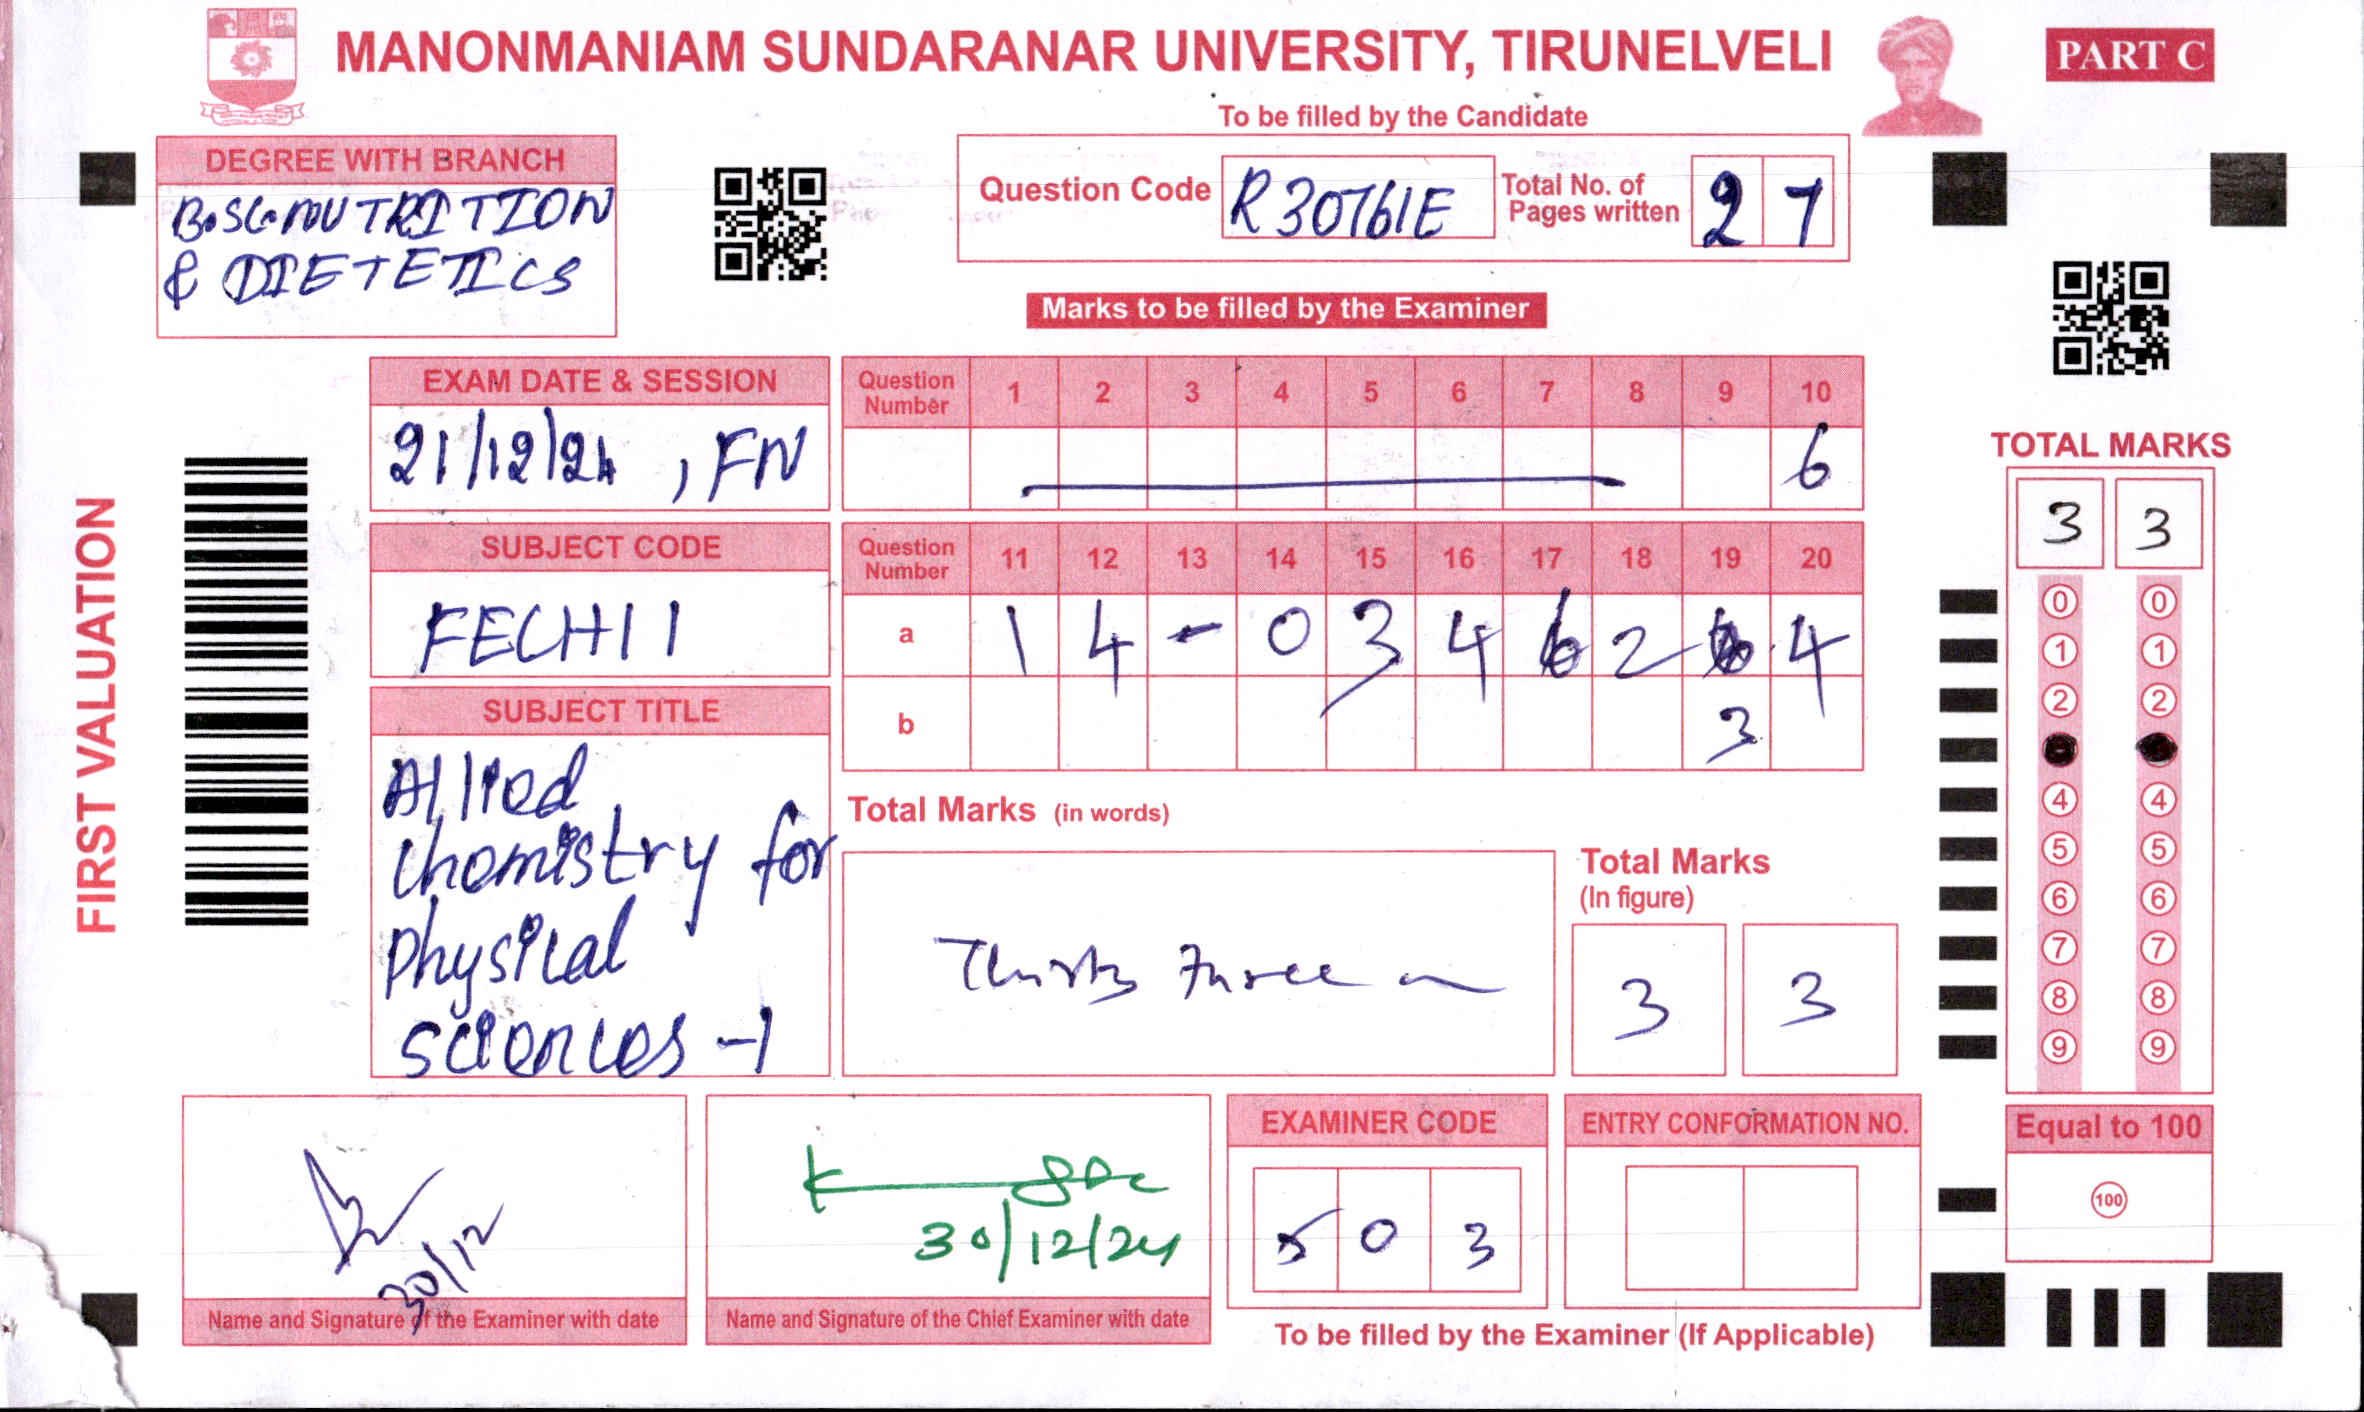 MANONMANIAM SUNDARANAR UNIVERSITY, TIRUNELVELI
PART C
To be filled by the Candidate
DEGREE WITH BRANCH
B.SC. NUTRITION
& DIETETICS
Question Code R30761E
Total No. of
Pages written 27
Marks to be filled by the Examiner
EXAM DATE & SESSION
21/12/24, FN
Question
Number 1 2 3 4 5 6 7 8 9 10
6
SUBJECT CODE
FECH11
Question
Number 11 12 13 14 15 16 17 18 19 20
a 1 4 - 0 3 4 2 4
b 3
SUBJECT TITLE
Allied
chemistry for
physical
sciences -1
Total Marks (in words)
Thirty Three
Total Marks
(In figure)
3 3
FIRST VALUATION
TOTAL MARKS
3 3
0 0
1 1
2 2
4 4
5 5
6 6
7 7
8 8
9 9
Equal to 100
100
30/12
Name and Signature of the Examiner with date
30/12/24
Name and Signature of the Chief Examiner with date
EXAMINER CODE
5 0 3
ENTRY CONFORMATION NO.
To be filled by the Examiner (If Applicable)